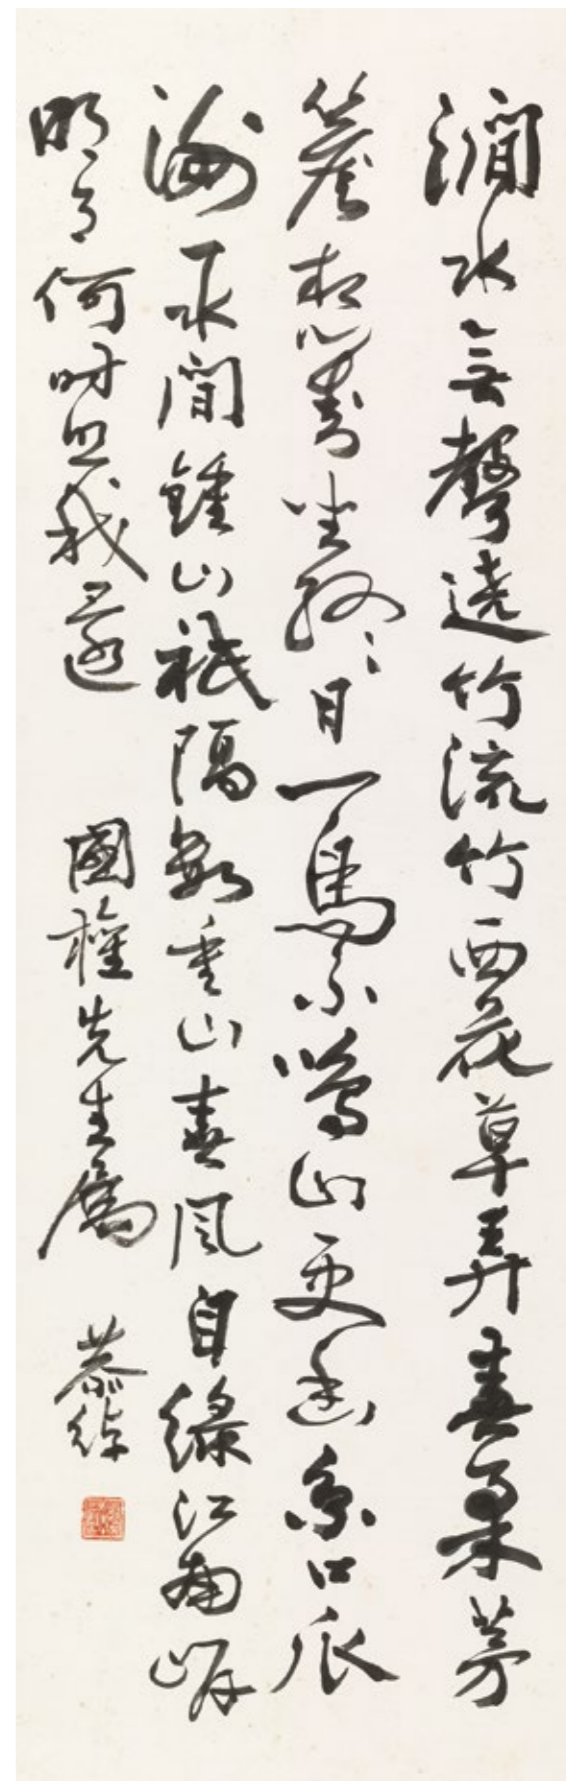 澗水無聲遶竹流竹西花草弄春柔茅
簷相對坐終日一鳥不鳴山更幽京口瓜
洲一水間鍾山祇隔數重山春風自綠江南岸
明月何時照我還 國權先生屬 恭綽